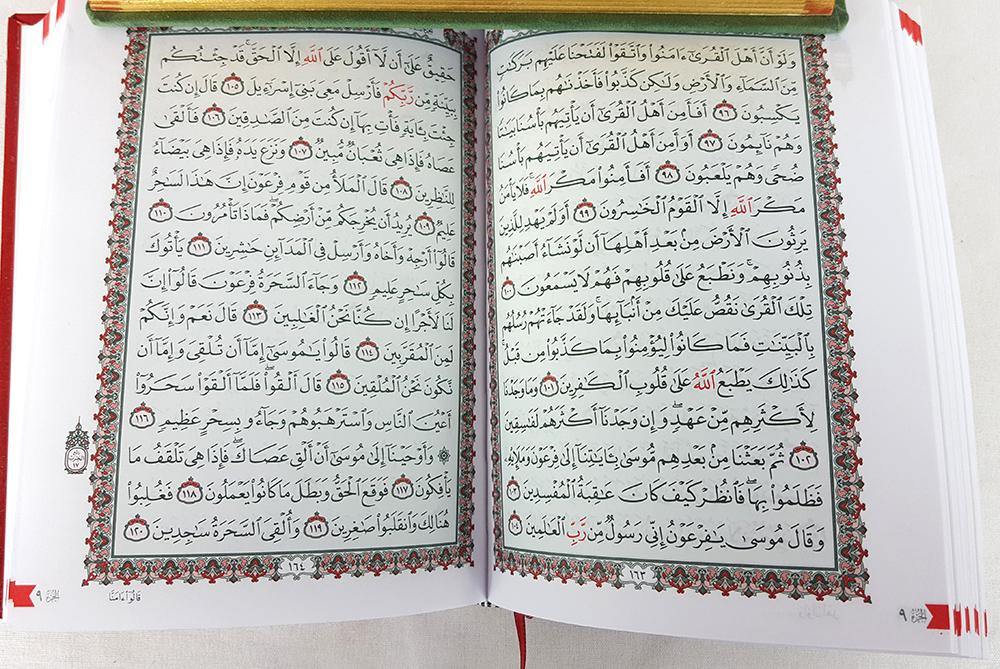 وَلَوْ أَنَّ أَهْلَ ٱلْقُرَىٰٓ ءَامَنُوا۟ وَٱتَّقَوْا۟ لَفَتَحْنَا عَلَيْهِم بَرَكَٰتٍ
مِّنَ ٱلسَّمَآءِ وَٱلْأَرْضِ وَلَٰكِن كَذَّبُوا۟ فَأَخَذْنَٰهُم بِمَا كَانُوا۟
يَكْسِبُونَ ٩٦ أَفَأَمِنَ أَهْلُ ٱلْقُرَىٰٓ أَن يَأْتِيَهُم بَأْسُنَا بَيَٰتًا
وَهُمْ نَآئِمُونَ ٩٧ أَوَأَمِنَ أَهْلُ ٱلْقُرَىٰٓ أَن يَأْتِيَهُم بَأْسُنَا
ضُحًى وَهُمْ يَلْعَبُونَ ٩٨ أَفَأَمِنُوا۟ مَكْرَ ٱللَّهِ ۚ فَلَا يَأْمَنُ
مَكْرَ ٱللَّهِ إِلَّا ٱلْقَوْمُ ٱلْخَٰسِرُونَ ٩٩ أَوَلَمْ يَهْدِ لِلَّذِينَ
يَرِثُونَ ٱلْأَرْضَ مِنۢ بَعْدِ أَهْلِهَآ أَن لَّوْ نَشَآءُ أَصَبْنَٰهُم
بِذُنُوبِهِمْ ۚ وَنَطْبَعُ عَلَىٰ قُلُوبِهِمْ فَهُمْ لَا يَسْمَعُونَ ١٠٠
تِلْكَ ٱلْقُرَىٰ نَقُصُّ عَلَيْكَ مِنْ أَنۢبَآئِهَا ۚ وَلَقَدْ جَآءَتْهُمْ رُسُلُهُم
بِٱلْبَيِّنَٰتِ فَمَا كَانُوا۟ لِيُؤْمِنُوا۟ بِمَا كَذَّبُوا۟ مِن قَبْلُ ۚ
كَذَٰلِكَ يَطْبَعُ ٱللَّهُ عَلَىٰ قُلُوبِ ٱلْكَٰفِرِينَ ١٠١ وَمَا وَجَدْنَا
لِأَكْثَرِهِم مِّنْ عَهْدٍ ۖ وَإِن وَجَدْنَآ أَكْثَرَهُمْ لَفَٰسِقِينَ
١٠٢ ثُمَّ بَعَثْنَا مِنۢ بَعْدِهِم مُّوسَىٰ بِـَٔايَٰتِنَآ إِلَىٰ فِرْعَوْنَ وَمَلَإِي۟هِۦ
فَظَلَمُوا۟ بِهَا ۖ فَٱنظُرْ كَيْفَ كَانَ عَٰقِبَةُ ٱلْمُفْسِدِينَ ١٠٣
وَقَالَ مُوسَىٰ يَٰفِرْعَوْنُ إِنِّى رَسُولٌ مِّن رَّبِّ ٱلْعَٰلَمِينَ ١٠٤
١٦٣
الجزء ٩
حَقِيقٌ عَلَىٰٓ أَن لَّآ أَقُولَ عَلَى ٱللَّهِ إِلَّا ٱلْحَقَّ ۚ قَدْ جِئْتُكُم
بِبَيِّنَةٍ مِّن رَّبِّكُمْ فَأَرْسِلْ مَعِىَ بَنِىٓ إِسْرَٰٓءِيلَ ١٠٥ قَالَ إِن كُنتَ
جِئْتَ بِـَٔايَةٍ فَأْتِ بِهَآ إِن كُنتَ مِنَ ٱلصَّٰدِقِينَ ١٠٦ فَأَلْقَىٰ
عَصَاهُ فَإِذَا هِىَ ثُعْبَانٌ مُّبِينٌ ١٠٧ وَنَزَعَ يَدَهُۥ فَإِذَا هِىَ بَيْضَآءُ
لِلنَّٰظِرِينَ ١٠٨ قَالَ ٱلْمَلَأُ مِن قَوْمِ فِرْعَوْنَ إِنَّ هَٰذَا لَسَٰحِرٌ
عَلِيمٌ ١٠٩ يُرِيدُ أَن يُخْرِجَكُم مِّنْ أَرْضِكُمْ ۖ فَمَاذَا تَأْمُرُونَ ١١٠
قَالُوٓا۟ أَرْجِهْ وَأَخَاهُ وَأَرْسِلْ فِى ٱلْمَدَآئِنِ حَٰشِرِينَ ١١١ يَأْتُوكَ
بِكُلِّ سَٰحِرٍ عَلِيمٍ ١١٢ وَجَآءَ ٱلسَّحَرَةُ فِرْعَوْنَ قَالُوٓا۟ إِنَّ
لَنَا لَأَجْرًا إِن كُنَّا نَحْنُ ٱلْغَٰلِبِينَ ١١٣ قَالَ نَعَمْ وَإِنَّكُمْ
لَمِنَ ٱلْمُقَرَّبِينَ ١١٤ قَالُوا۟ يَٰمُوسَىٰٓ إِمَّآ أَن تُلْقِىَ وَإِمَّآ أَن
نَّكُونَ نَحْنُ ٱلْمُلْقِينَ ١١٥ قَالَ أَلْقُوا۟ ۖ فَلَمَّآ أَلْقَوْا۟ سَحَرُوٓا۟
أَعْيُنَ ٱلنَّاسِ وَٱسْتَرْهَبُوهُمْ وَجَآءُو بِسِحْرٍ عَظِيمٍ ١١٦
۞ وَأَوْحَيْنَآ إِلَىٰ مُوسَىٰٓ أَنْ أَلْقِ عَصَاكَ ۖ فَإِذَا هِىَ تَلْقَفُ مَا
يَأْفِكُونَ ١١٧ فَوَقَعَ ٱلْحَقُّ وَبَطَلَ مَا كَانُوا۟ يَعْمَلُونَ ١١٨ فَغُلِبُوا۟
هُنَالِكَ وَٱنقَلَبُوا۟ صَٰغِرِينَ ١١٩ وَأُلْقِىَ ٱلسَّحَرَةُ سَٰجِدِينَ ١٢٠
١٦٤
قَالُوٓا۟ ءَامَنَّا
الجزء ٩